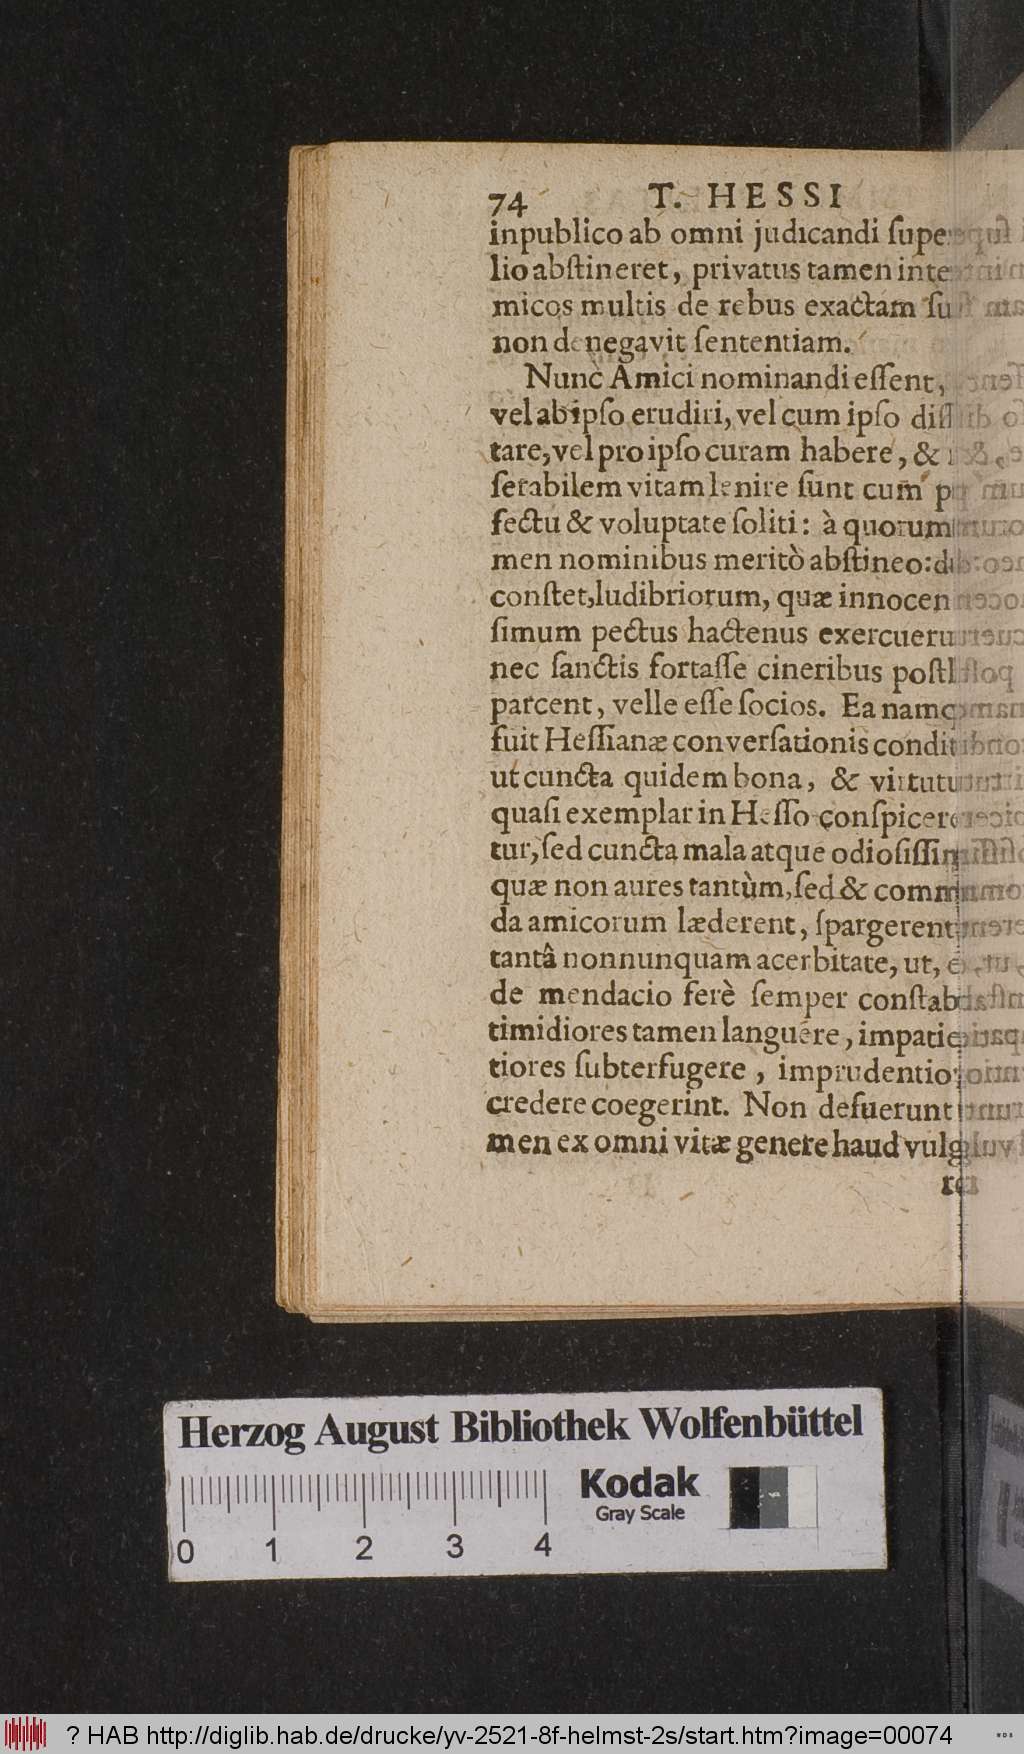 74 T. HESSI
inpublico ab omni judicandi supe
lio abstineret, privatus tamen inte
micos multis de rebus exactam su
non denegavit sententiam.
Nunc Amici nominandi essent,
vel ab ipso erudiri, vel cum ipso diss
tare, vel pro ipso curam habere, &
serabilem vitam lenire sunt cum p
fectu & voluptate soliti: à quorum
men nominibus meritò abstineo: d
constet, ludibriorum, quæ innocen
simum pectus hactenus exercueru
nec sanctis fortasse cineribus post
parcent, velle esse socios. Ea namq
fuit Hessianæ conversationis condit
ut cuncta quidem bona, & virtutu
quasi exemplar in Hesso conspicere
tur, sed cuncta mala atque odiosissim
quæ non aures tantùm, sed & comm
da amicorum læderent, spargerent
tantâ nonnunquam acerbitate, ut,
de mendacio ferè semper constab
timidiores tamen languêre, impatie
tiores subterfugere, imprudentio
credere coegerint. Non defuerunt
men ex omni vitæ genere haud vulg
Herzog August Bibliothek Wolfenbüttel
Kodak
Gray Scale
0 1 2 3 4
? HAB http://diglib.hab.de/drucke/yv-2521-8f-helmst-2s/start.htm?image=00074